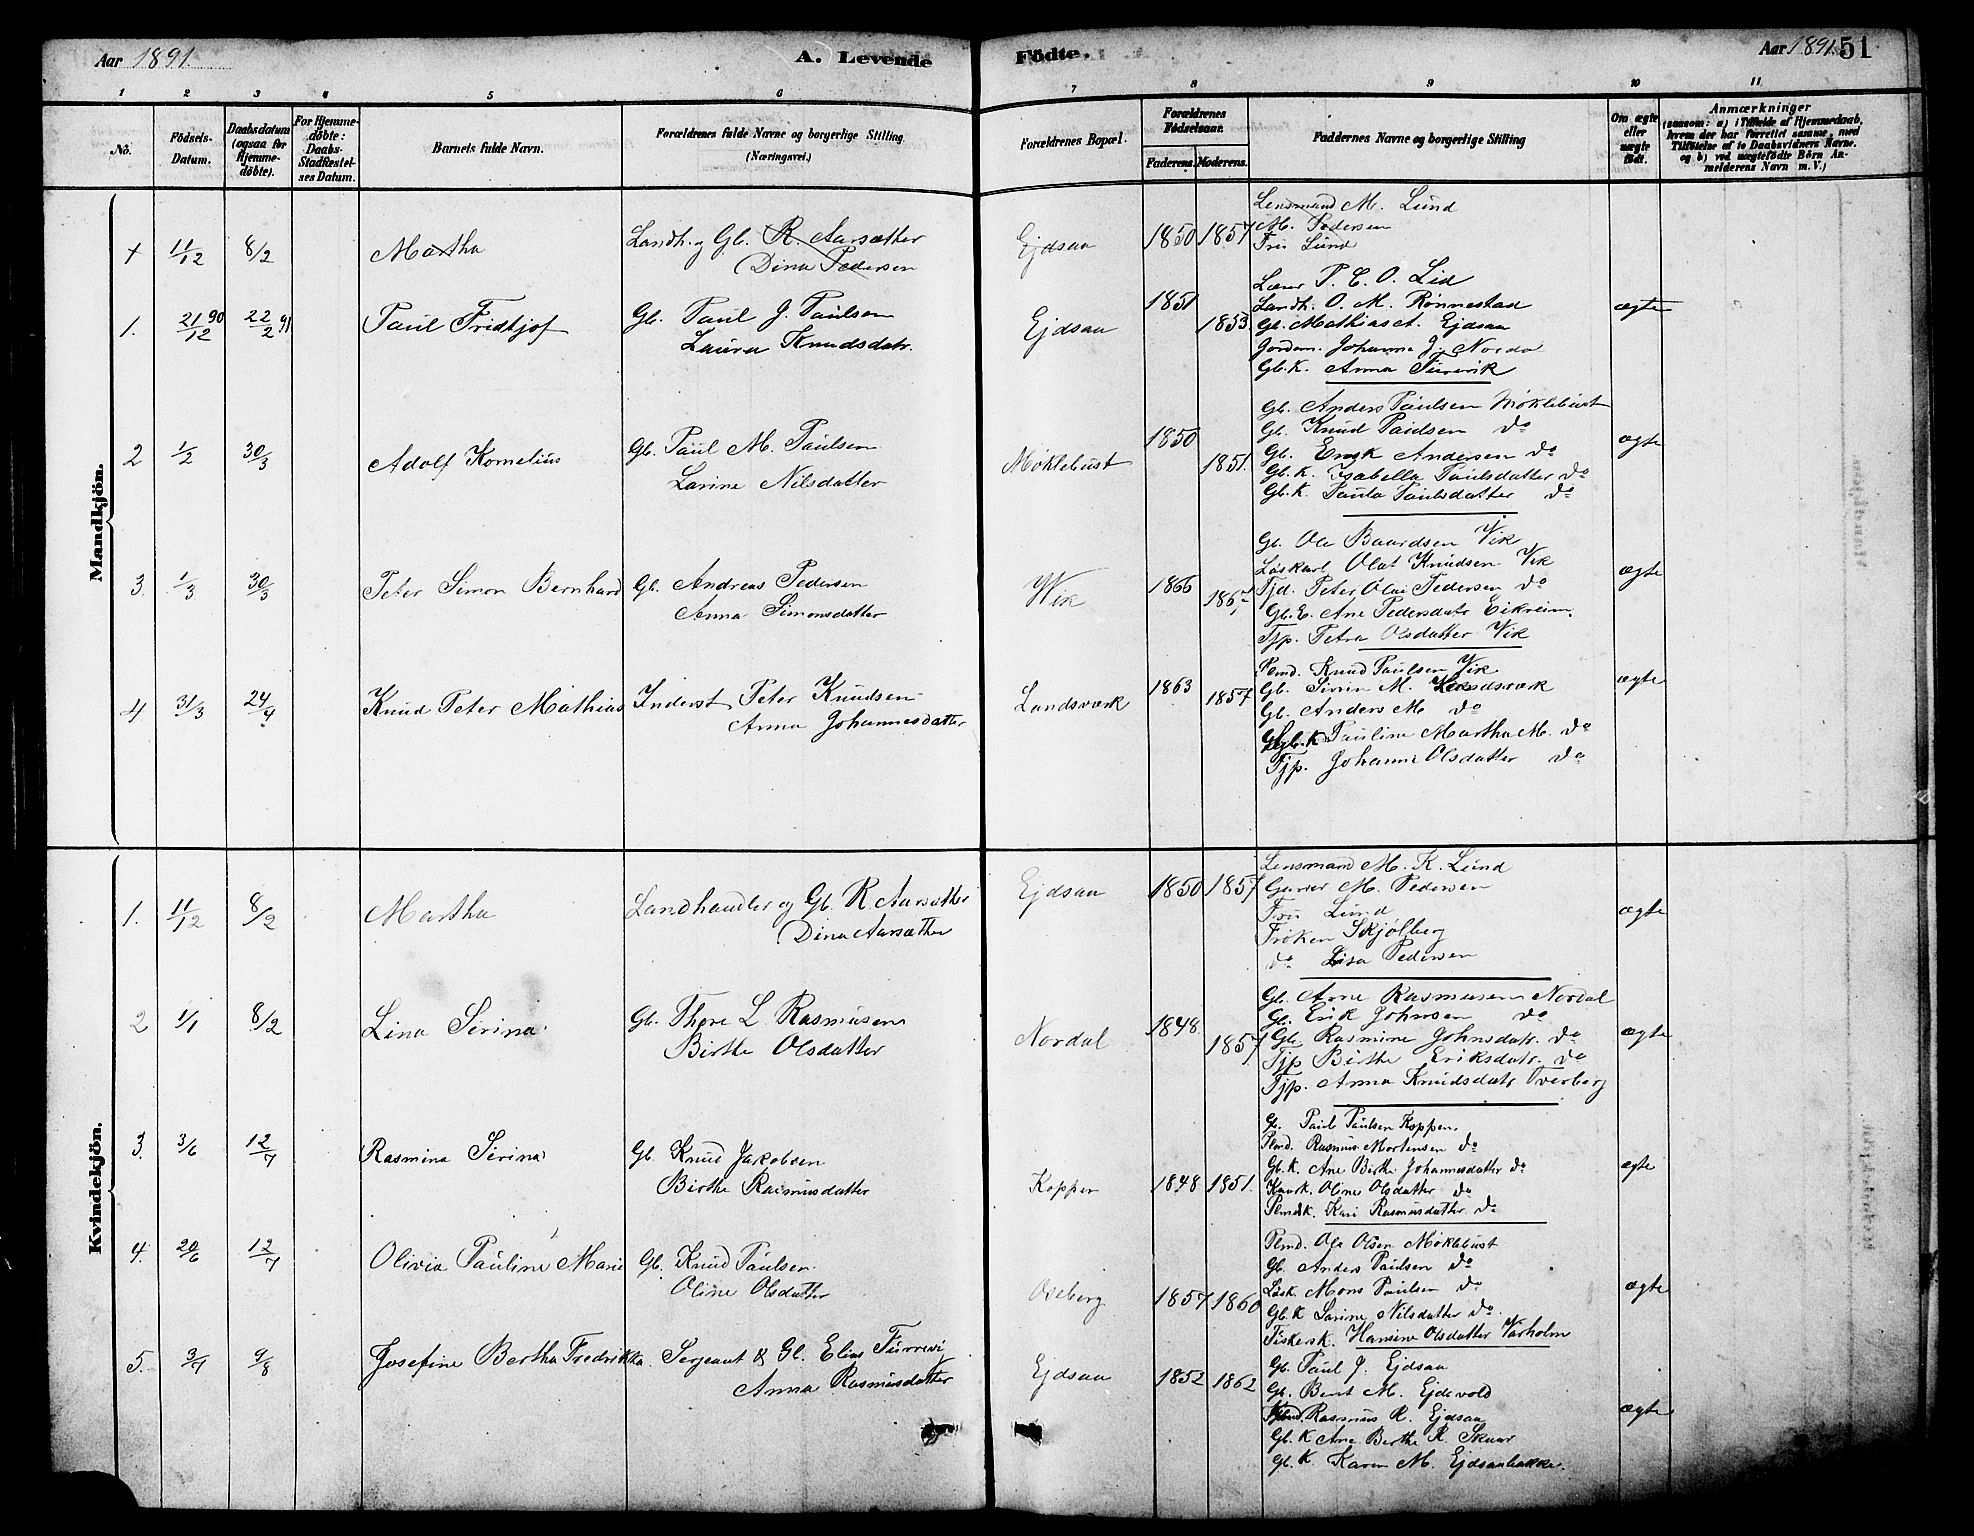 Aar 1891.
A. Levende
Födte.
Aar 1891.
51
1 2 3 4 5 6 7 8 9 10 11
No.
Födsels-
Datum.
Daabsdatum
(ogsaa for
Hjemme-
döbte).
For Hjemme-
döbte:
Daabs-
Stadfæstel-
ses Datum.
Barnets fulde Navn.
Forældrenes fulde Navne og borgerlige Stilling
(Næringsvei.)
Forældrenes Bopæl.
Forældrenes
Födselsaar.
Faderens. Moderens.
Faddernes Navne og borgerlige Stilling
Om ægte
eller
uægte
födt.
Anmærkninger
(saasom: a) i Tilfælde af Hjemmedaab,
hvem der har forrettet samme, med
Tilföielse af to Daabsvidners Navne.
og b) ved uægtefödte Börn An-
melderens Navn m. V.)
Mandkjön.
+ 11/12 8/2 Martha
Landh. og Gb. R. Aarsæther
Dina Pedersen
Ejdsaa 1850 1857
Lensmand M. Lund
M. Pedersen
Fru Lund
1. 21/12 90 22/2 91 Paul Fridtjof
Gb. Paul J. Paulsen
Laura Knudsdatr.
Ejdsaa 1851 1853.
Lærer P. C. O. Lid
Landh. O. M. Rönnestad
Gb. Mathias A. Ejdsaa
Jordem. Johanna J. Nordal
Gb. K. Anna Furevik
ægte
2 1/2 30/3 Adolf Kornelius
Gb. Paul M. Paulsen
Larine Nilsdatter
Möklebust 1850 1851.
Gb. Anders Paulsen Möklebust
Gb. Knud Paulsen do
Gb. Andersen do
Gb. K. Isabella Paulsdatter do
Gb. K. Paula Paulsdatter do
ægte
3. 1/3 30/3 Peter Simon Bernhard
Gb. Andreas Pedersen
Anna Simonsdatter
Vik 1866 1867
Gb. Ole Baardsen Vik
Löskarl Olai Knudsen Vik
Tjd. Peter Olai Pedersen do
Gb. E. Ane Pedersdatr Eikreim.
Tjp. Petra Olsdatter Vik
ægte
4 31/3 24/4 Knud Peter Mathias
Inderst Peter Knudsen
Anna Johannesdatter
Landsværk 1863 1857
Plmd. Knud Paulsen Vik
Gb. Simen M. Landsværk
Gb. Anders M. do
Gb. K. Pauline Martha M. do
Tjp. Johanne Olsdatter do
ægte
Kvindekjön.
1. 11/12 8/2 Martha
Landhandler og Gb. R. Aarsæther
Dina Aarsæther
Ejdsaa 1850 1857
Lensmand M. K. Lund
M. Pedersen
Fru Lund
Fröken Skjölberg
do Lisa Pedersen
ægte
2 1/1 8/2 Lina Serina
Gb. Thore L. Rasmusen
Birthe Olsdatter
Nordal 1848. 1857
Gb. Arne Rasmusen Nordal
Gb. Erik Johnsen do
Gb. Rasmine Johnsdatr. do
Tjp Birthe Eriksdatr. do
Tjp. Anna Knudsdatr Tverberg
ægte
3. 3/6 12/7 Rasmina Serina
Gb. Knud Jakobsen
Birthe Rasmusdatter
Koppen 1848 1851.
Gb. Paul Paulsen Koppen.
Plmd. Rasmus Mortensen do
Gb. K. Ane Birthe Johannesdatter do
Kaark. Oline Olsdatter do
Plmdsk. Kari Rasmusdatter do
ægte
4. 20/6 12/7 Olivia Pauline Marie
Gb. Knud Paulsen.
Oline Olsdatter
Oseberg 1857 1860
Plmd. Ole Olsen Möklebust
Gb. Anders Paulsen do
Lösk. Mons Paulsen do
Gb. K Larine Nilsdatter do.
Fiskersk. Hansine Olsdatter Varholm
ægte
5. 3/7 9/8 Josefine Bertha Fredrikka.
Sergeant & Gb. Elias Furrevig
Anna Rasmusdatter
Ejdsaa 1852 1862
Gb. Paul J. Ejdsaa
Gb. Bernt M. Ejdevold
Rasmus R. Ejdsaa
Gb. K Ane Berthe R. Skaar
Gb. K. Karen M. Ejdsaabakke.
ægte